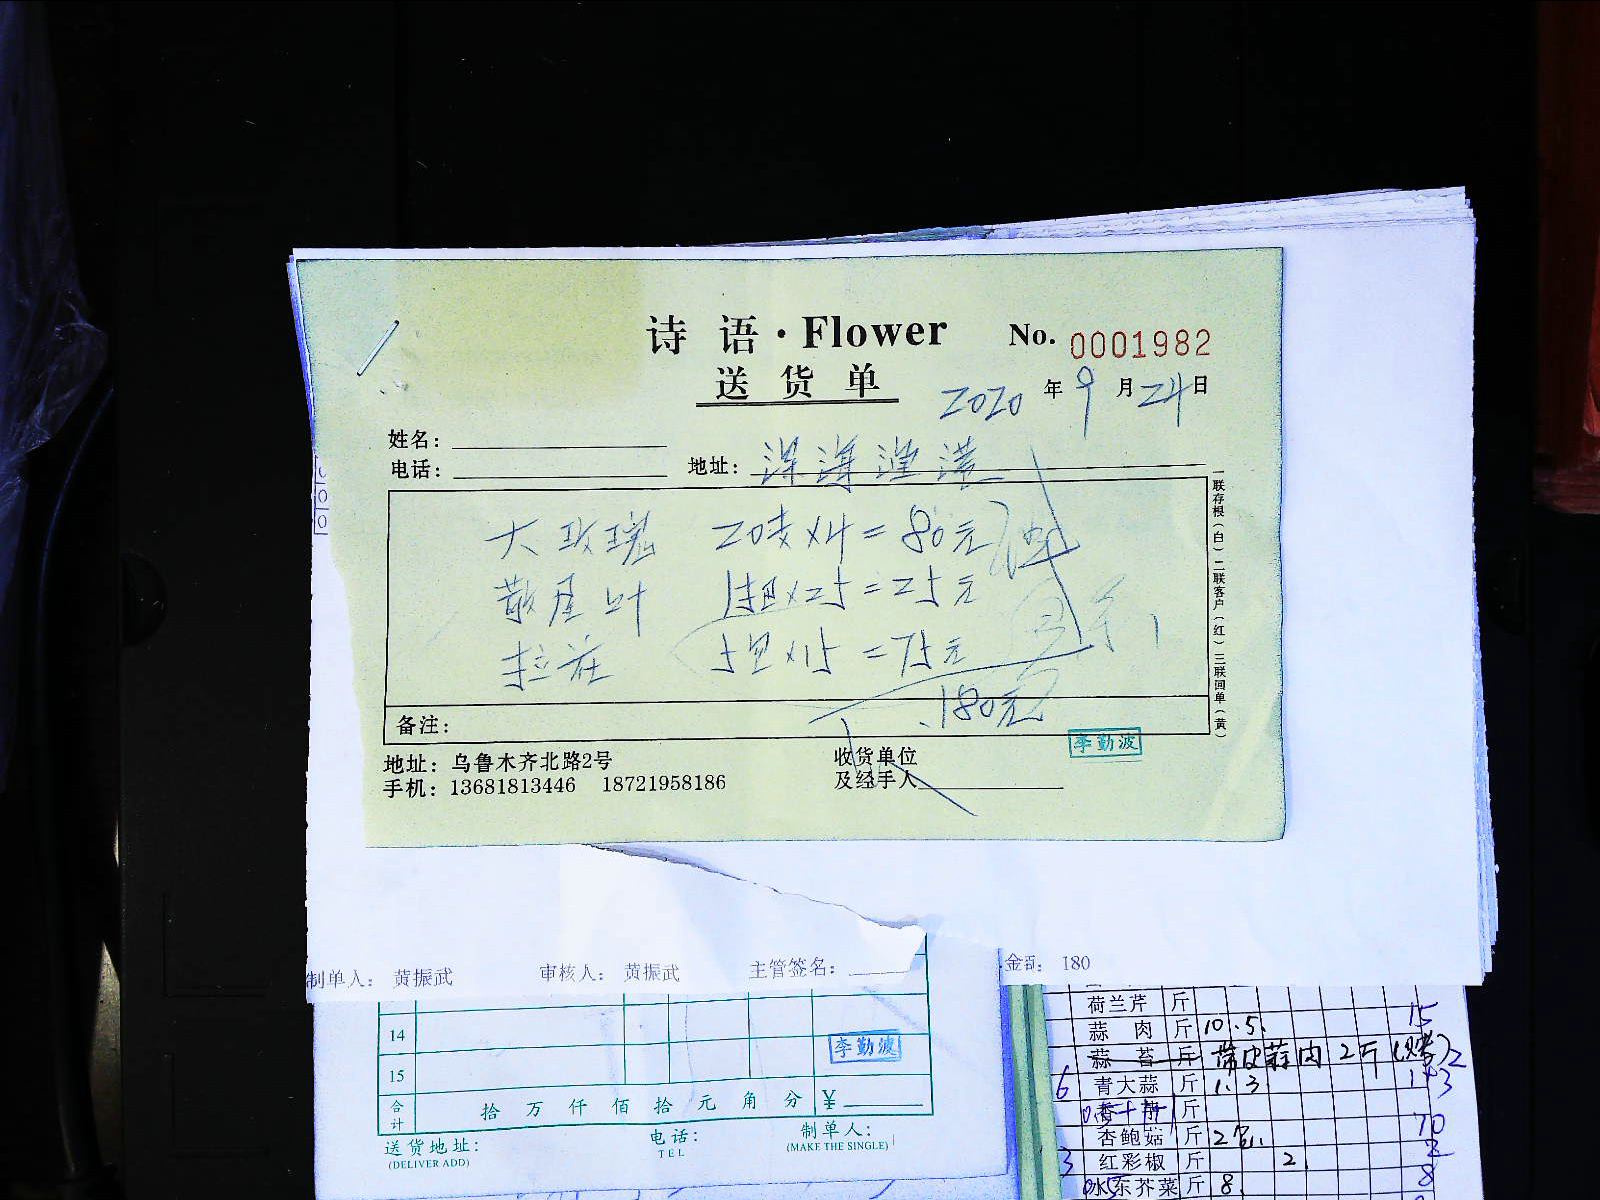 诗语·Flower No. 0001982
送货单
2020年9月24日
姓名：
电话： 地址：
大玫瑰 20支×4=80元
散尾叶 1扎×25=25元
5扎×15=75元
180元
备注：
李勤波
一联存根（白）二联客户（红）三联回单（黄）
地址：乌鲁木齐北路2号
手机：13681813446 18721958186
收货单位
及经手人
制单人： 黄振武 审核人： 黄振武 主管签名： 金 180
14
李勤波
15
合计 拾万仟佰拾元角分 ¥
送货地址：
(DELIVER ADD)
电话：
TEL
制单人：
(MAKE THE SINGLE)
荷兰芹 斤
蒜肉 斤 10.5. 15
蒜苔 斤 带皮蒜肉 2斤
6 青大蒜 斤 1.3
斤
杏鲍菇 斤 70
3 红彩椒 斤 2. 2
水东芥菜 斤 8. 8